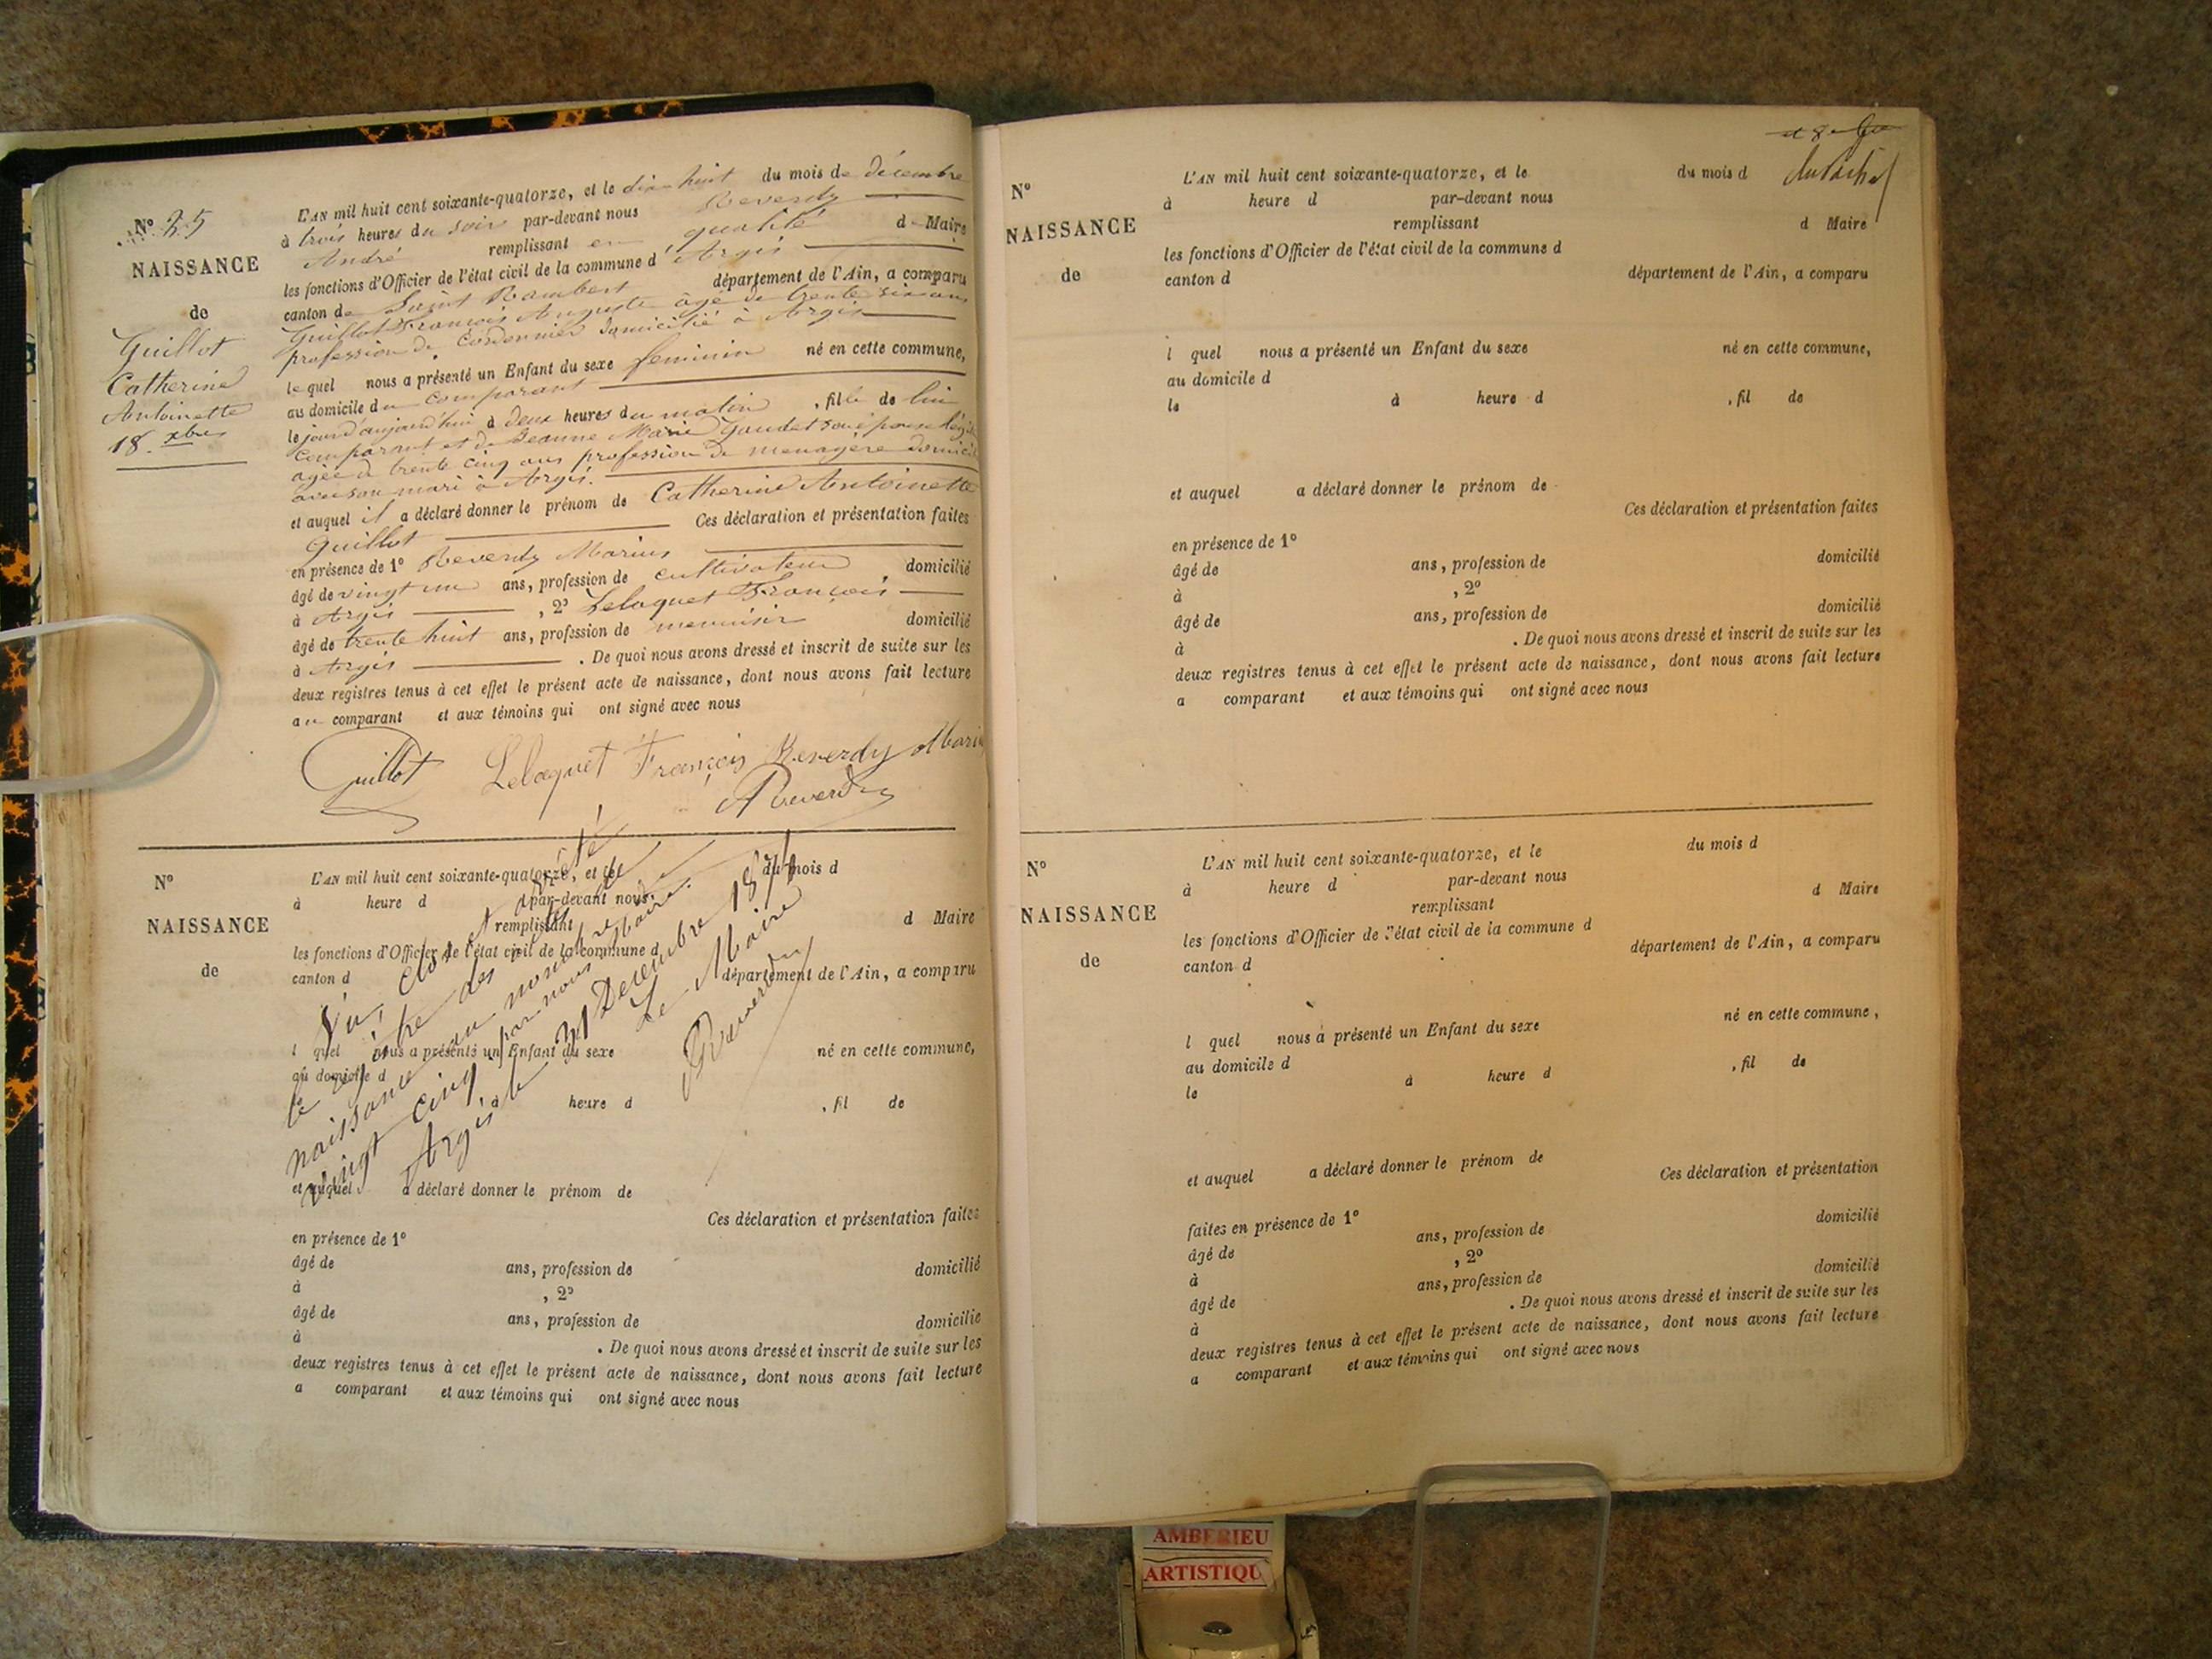 N° 25
NAISSANCE
de
Guillot
Catherine
Antoinette
18 xbre
L'AN mil huit cent soixante-quatorze, et le dix huit du mois de décembre
à trois heures du soir par-devant nous Reverdy
André remplissant en qualité de Maire
les fonctions d'Officier de l'état civil de la commune d'Argis
canton de Saint Rambert département de l'Ain, a comparu
Guillot François Auguste âgé de trente six ans
profession de cordonnier domicilié à Argis
lequel nous a présenté un Enfant du sexe feminin né en cette commune,
au domicile du comparant
le jour d'aujourd'hui à deux heures du matin, fille de lui
comparant et de Jeanne Marie Gaudet son épouse
agée de trente cinq ans profession de menagère
avec son mari à Argis.
et auquel il a déclaré donner le prénom de Catherine Antoinette
Guillot Ces déclaration et présentation faites
en présence de 1° Reverdy Marius
âgé de vingt un ans, profession de cultivateur domicilié
à Argis, 2° Lelaquet François
âgé de trente huit ans, profession de menuisier domicilié
à Argis. De quoi nous avons dressé et inscrit de suite sur les
deux registres tenus à cet effet le présent acte de naissance, dont nous avons fait lecture
au comparant et aux témoins qui ont signé avec nous
Guillot Lelaquet François Reverdy
A Reverdy
N°
NAISSANCE
de
L'AN mil huit cent soixante-quatorze, et le du mois d
à heure d par-devant nous
remplissant d Maire
les fonctions d'Officier de l'état civil de la commune d
canton d département de l'Ain, a comparu
l quel nous a présenté un Enfant du sexe né en cette commune,
au domicile d
à heure d , fil de
et auquel a déclaré donner le prénom de
Ces déclaration et présentation faites
en présence de 1°
âgé de ans, profession de domicilié
à , 2°
âgé de ans, profession de domicilié
à . De quoi nous avons dressé et inscrit de suite sur les
deux registres tenus à cet effet le présent acte de naissance, dont nous avons fait lecture
a comparant et aux témoins qui ont signé avec nous
Vu, clos et arrêté
le registre des actes de
naissance au nombre de
vingt cinq par nous Maire
Argis le 31 Decembre 1874
Le Maire
A Reverdy
N°
NAISSANCE
de
L'AN mil huit cent soixante-quatorze, et le du mois d
à heure d par-devant nous
remplissant d Maire
les fonctions d'Officier de l'état civil de la commune d
canton d département de l'Ain, a comparu
l quel nous a présenté un Enfant du sexe né en cette commune,
au domicile d
le à heure d , fil de
et auquel a déclaré donner le prénom de
Ces déclaration et présentation faites
en présence de 1°
âgé de ans, profession de domicilié
à , 2°
âgé de ans, profession de domicilié
à . De quoi nous avons dressé et inscrit de suite sur les
deux registres tenus à cet effet le présent acte de naissance, dont nous avons fait lecture
a comparant et aux témoins qui ont signé avec nous
N°
NAISSANCE
de
L'AN mil huit cent soixante-quatorze, et le du mois d
à heure d par-devant nous
remplissant d Maire
les fonctions d'Officier de l'état civil de la commune d
canton d département de l'Ain, a comparu
l quel nous a présenté un Enfant du sexe né en cette commune,
au domicile d
le à heure d , fil de
et auquel a déclaré donner le prénom de
Ces déclaration et présentation
faites en présence de 1°
âgé de ans, profession de domicilié
à , 2°
âgé de ans, profession de domicilié
à . De quoi nous avons dressé et inscrit de suite sur les
deux registres tenus à cet effet le présent acte de naissance, dont nous avons fait lecture
a comparant et aux témoins qui ont signé avec nous
AMBERIEU
ARTISTIQU